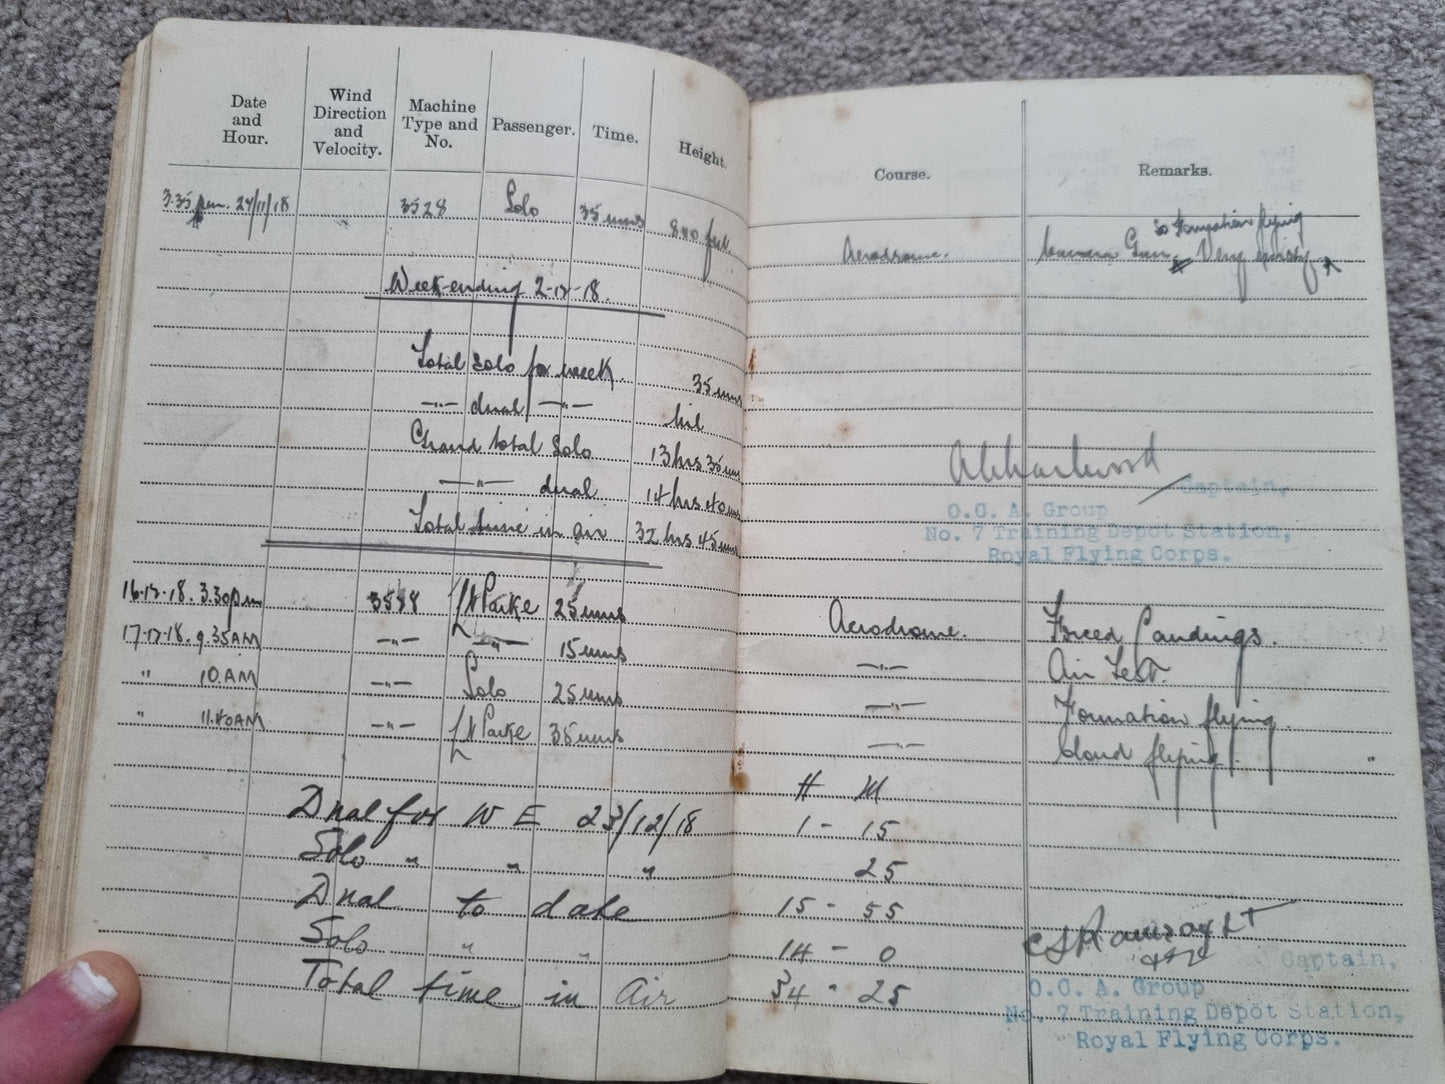 Date and Hour. Wind Direction and Velocity. Machine Type and No. Passenger. Time. Height. Course. Remarks.
3.35 pm. 29/11/18 3528 Solo 35 mins 800 feet Aerodrome. Camera Gun. & Formation flying Very
Week-ending 2-12-18.
Total solo for week. 35 mins
—"— dual —"— nil
Grand total Solo 13 hrs 35 mins
—"— dual 14 hrs 40 mins
Total time in air 32 hrs 45 mins
Captain,
O.C. A. Group
No. 7 Training Depot Station,
Royal Flying Corps.
16.12.18. 3.30pm 3528 Lt Parke 25 mins Aerodrome. Forced Landings.
17.12.18. 9.35AM —"— —"— 15 mins —"— Air Test.
" 10.AM —"— Solo 25 mins —"— Formation flying.
" 11.40AM —"— Lt Parke 35 mins —"— Cloud flying.
H M
Dual for W E 23/12/18 1 - 15
Solo " " " 25
Dual to date 15 - 55
Solo " " 14 - 0
Total time in Air 34 - 25
Ramsay Lt
Captain,
O.C. A. Group
No. 7 Training Depot Station,
Royal Flying Corps.